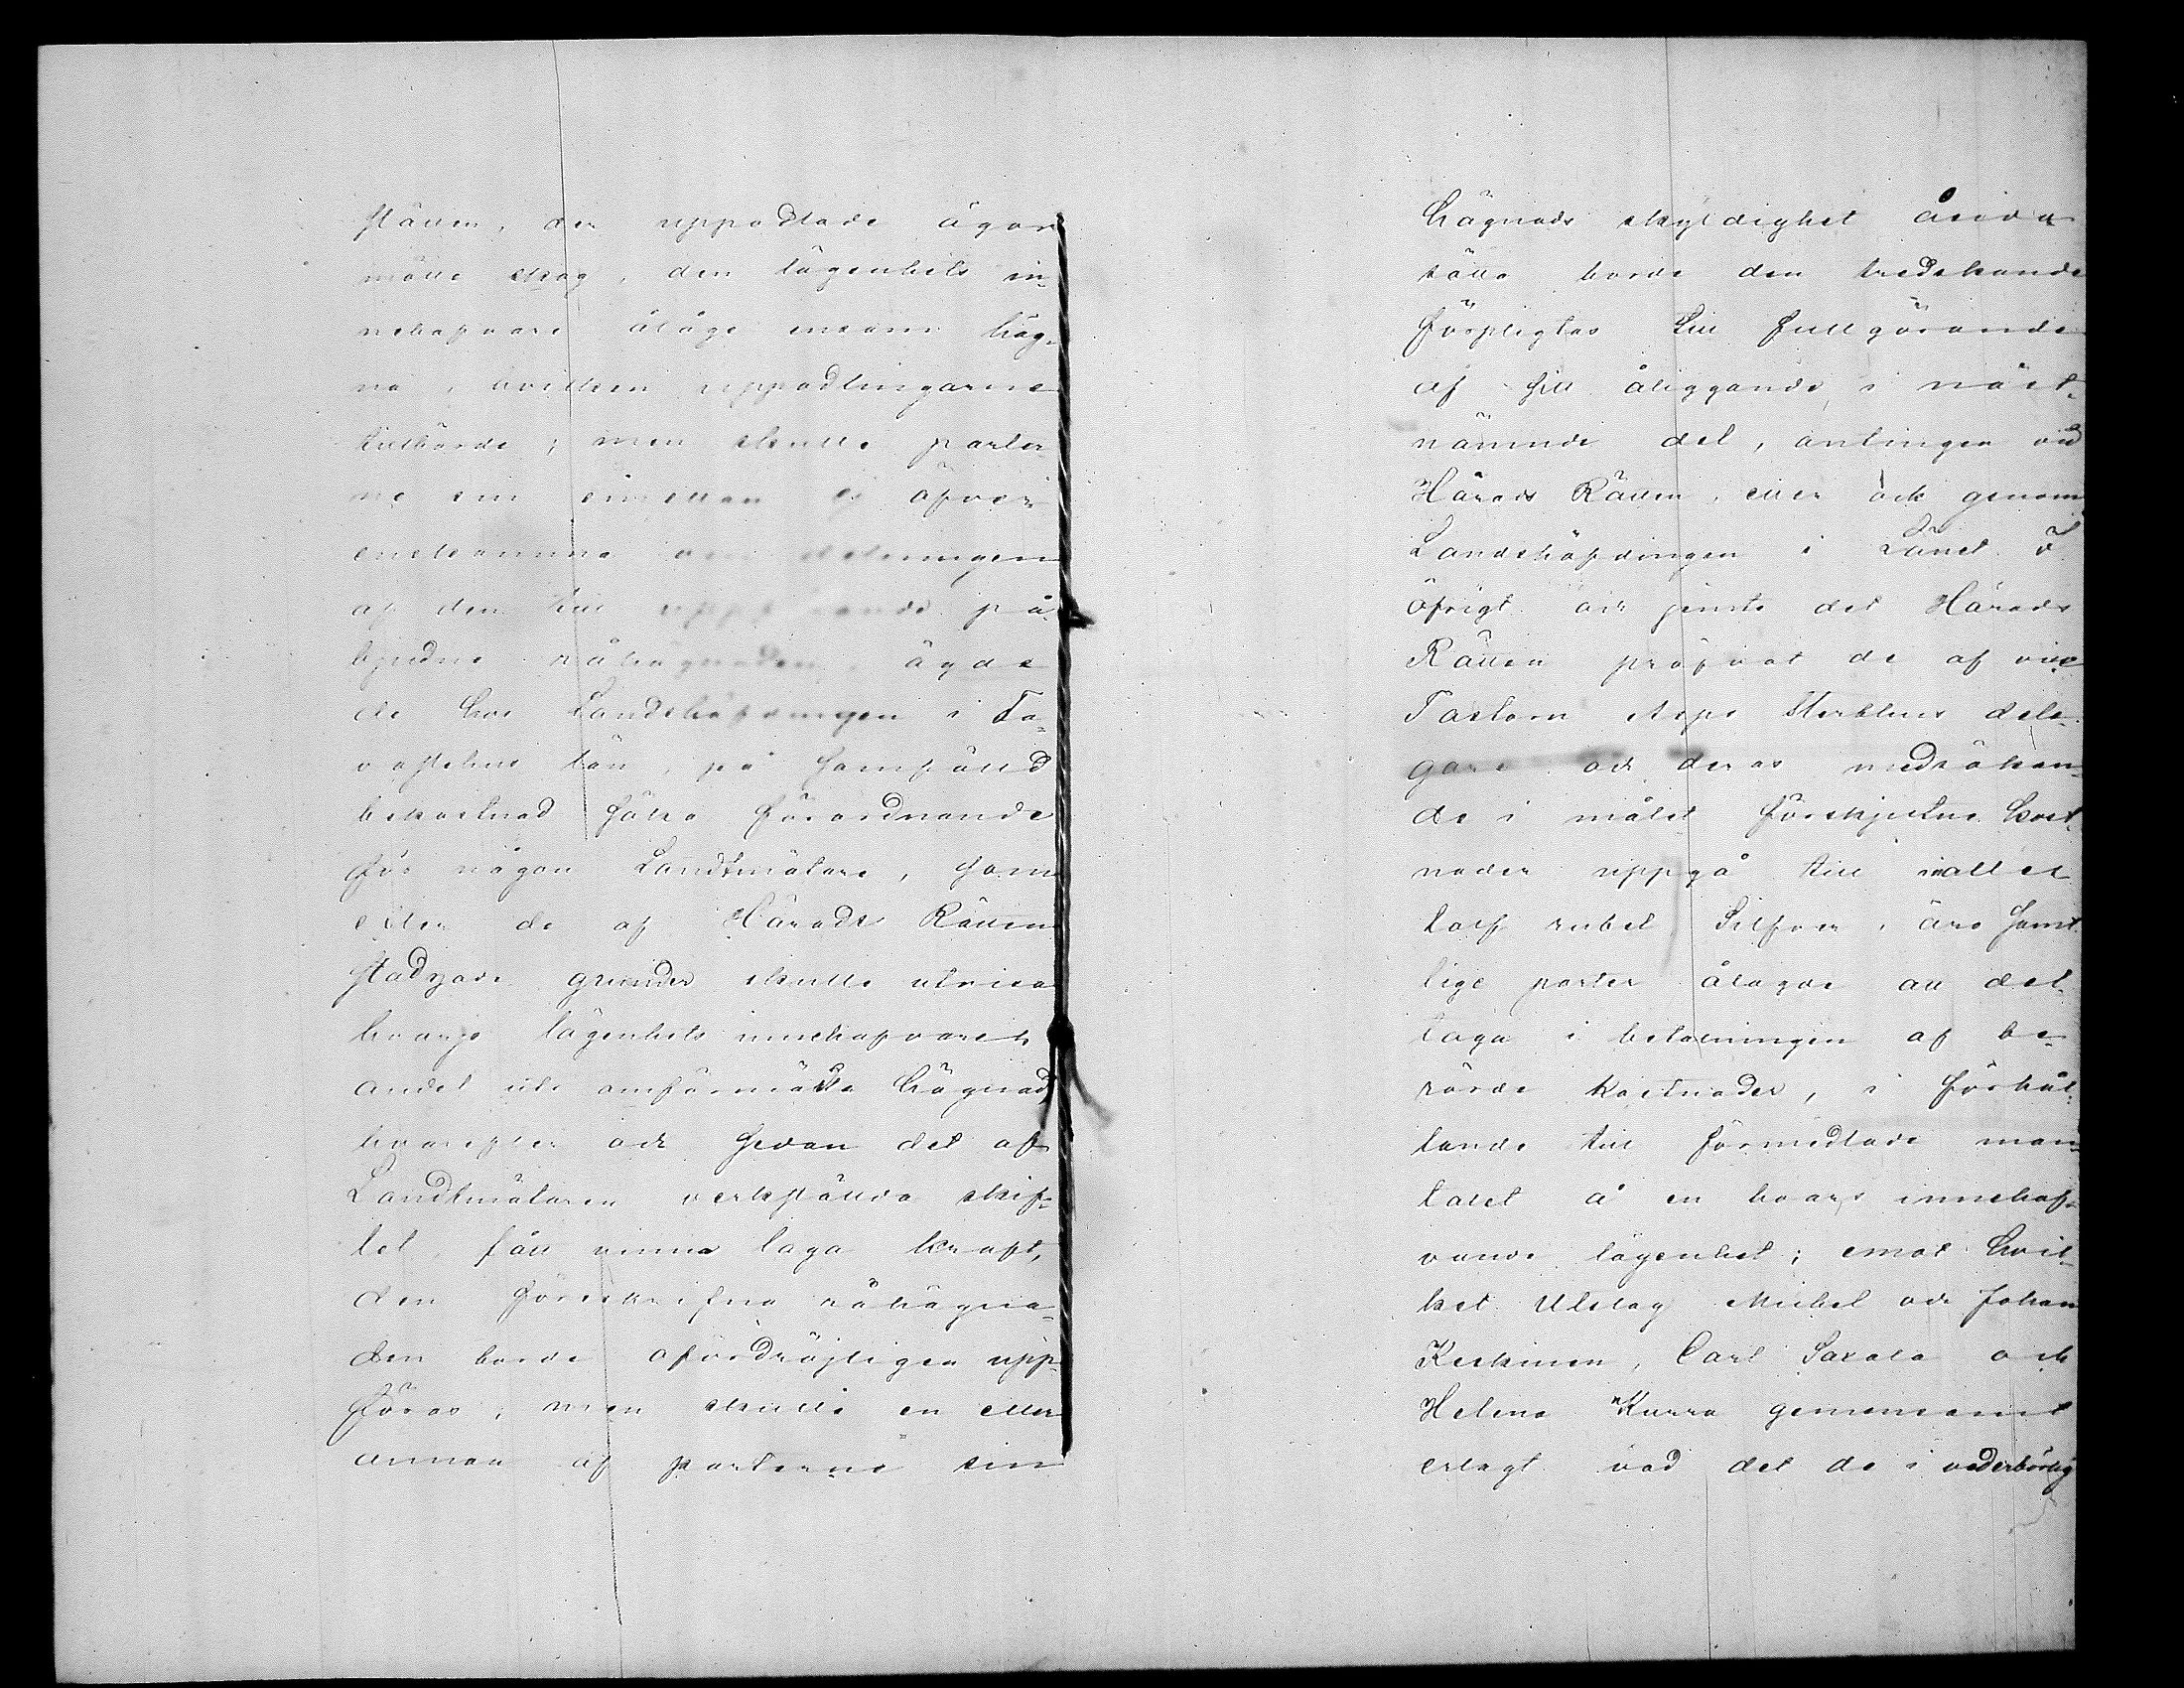 ställen, der uppodlade ägor
mötte skog, den lägenhets in-
nehafvare åläge ensam häg-
na, hvilken uppodlingarne
tillhörde; men skulle parter-
ne sin emellan ej öfver-
enskomma om delningen
af den till uppförande på-
bjudne råhägnaden, ägde
de hos Landshöfdingen i Ta-
vastehus län, på samfälld
bekostnad söka förordnande
för någon Landtmätare, som
efter de af Härads Rätten
stadgade grunder skulle utvisa
hvarje lägenhets innehafvares
andel uti omförmälda hägnad
hvarefter och sedan det af
Landtmätaren verkställda skif-
tet fått vinna laga kraft,
den föreskrifna råhägna-
den borde ofördröjligen upp-
föras; men skulle en eller
annan af parterne sin
hägnads skyldighet åsido
sätta borde den tredskande
förpligtas till fullgörande
af sitt åliggande, i näst-
nämnde del, antingen vid
Härads Rätten, eller ock genom
Landshöfdingen i Länet. I
öfrigt och jemte det Härads
Rätten pröfvat de af vice
Pastorn Asps Sterbhus dele-
gare och deras medsökan-
de i målet förskjutne kost-
nader uppgå till inalles
tolf rubel Silfver, äro samt-
lige parter ålagde att del-
taga i betalningen af be-
rörde kostnader, i förhål-
lande till förmedlade man-
talet å en hvars innehaf-
vande lägenhet; emot hvil-
ket Utslag Michel och Johan
Keskinen, Carl Saxala och
Helena Kurra gemensamt
erlagt vad det de i vederbörlig